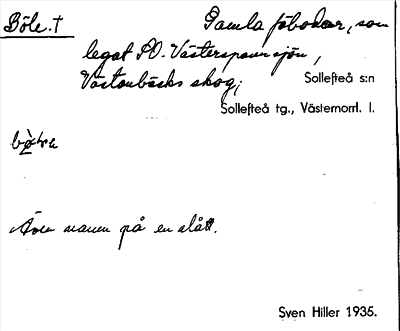 Böle. † Gamla fäbodar, som
legat SO. Västerspannsjön,
Västanbäcks skog; Sollefteå s:n
Sollefteå tg., Västernorrl. l.
Även namn på en slått.
Sven Hiller 1935.